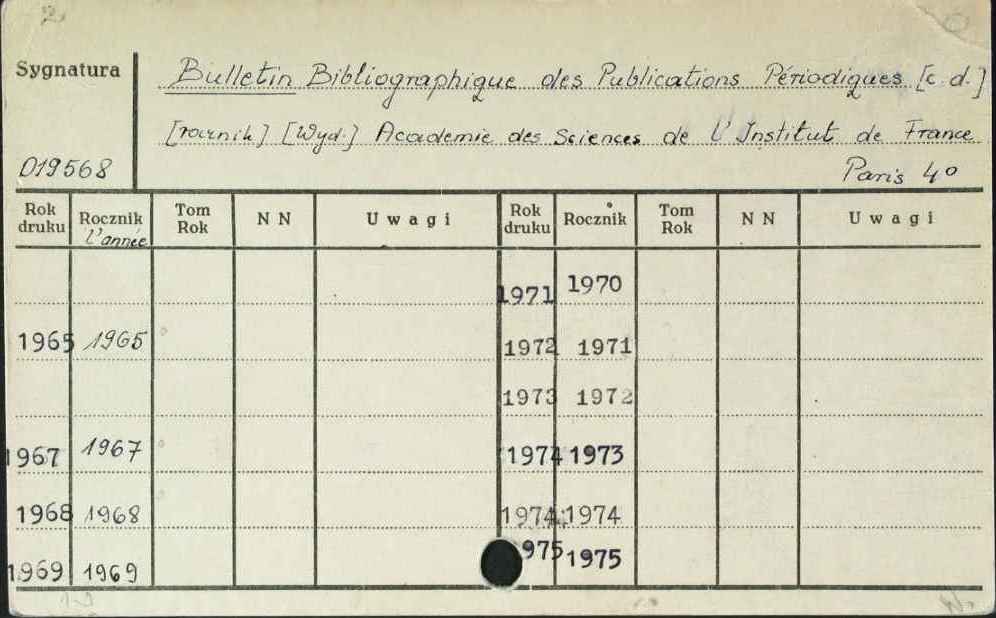 Sygnatura
Bulletin Bibliographique des Publications Périodiques [c.d.]
[rocznik] [Wyd.] Academie des Sciences de l'Institut de France
D19568
Paris 4º
Rok druku Rocznik l'année Tom Rok NN Uwagi Rok druku Rocznik Tom Rok NN Uwagi
1971 1970
1965 1965 1972 1971
1973 1972
1967 1967 1974 1973
1968 1968 1974 1974
1969 1969 975 1975